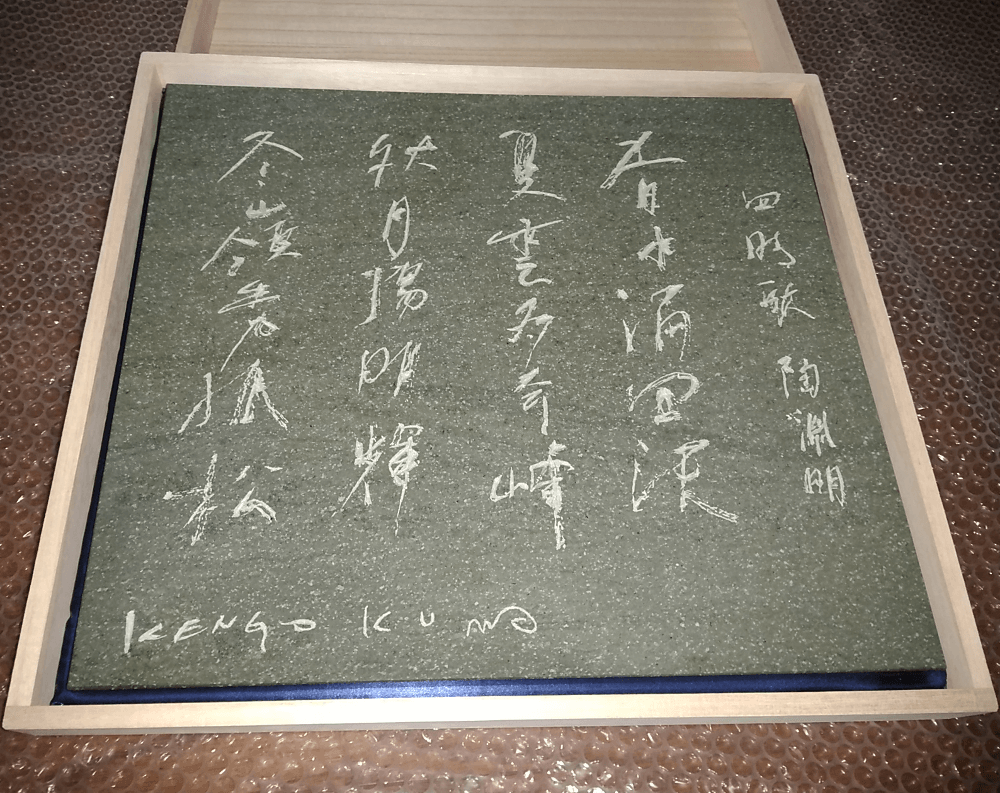 四時歌 陶淵明
春水満四沢
夏雲多奇峰
秋月揚明輝
冬嶺秀孤松
KENGO KUMA